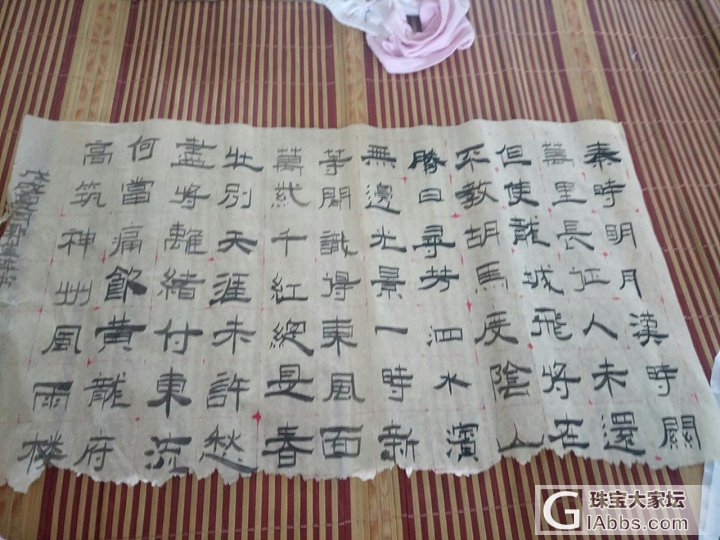 秦時明月漢時關
萬里長征人未還
但使龍城飛將在
不教胡馬度陰山
勝日尋芳泗水濱
無邊光景一時新
等閑識得東風面
萬紫千紅總是春
壯別天涯未許愁
盡將離緒付東流
何當痛飲黃龍府
高筑神州風雨樓
珠宝大家坛
iAbbs.com